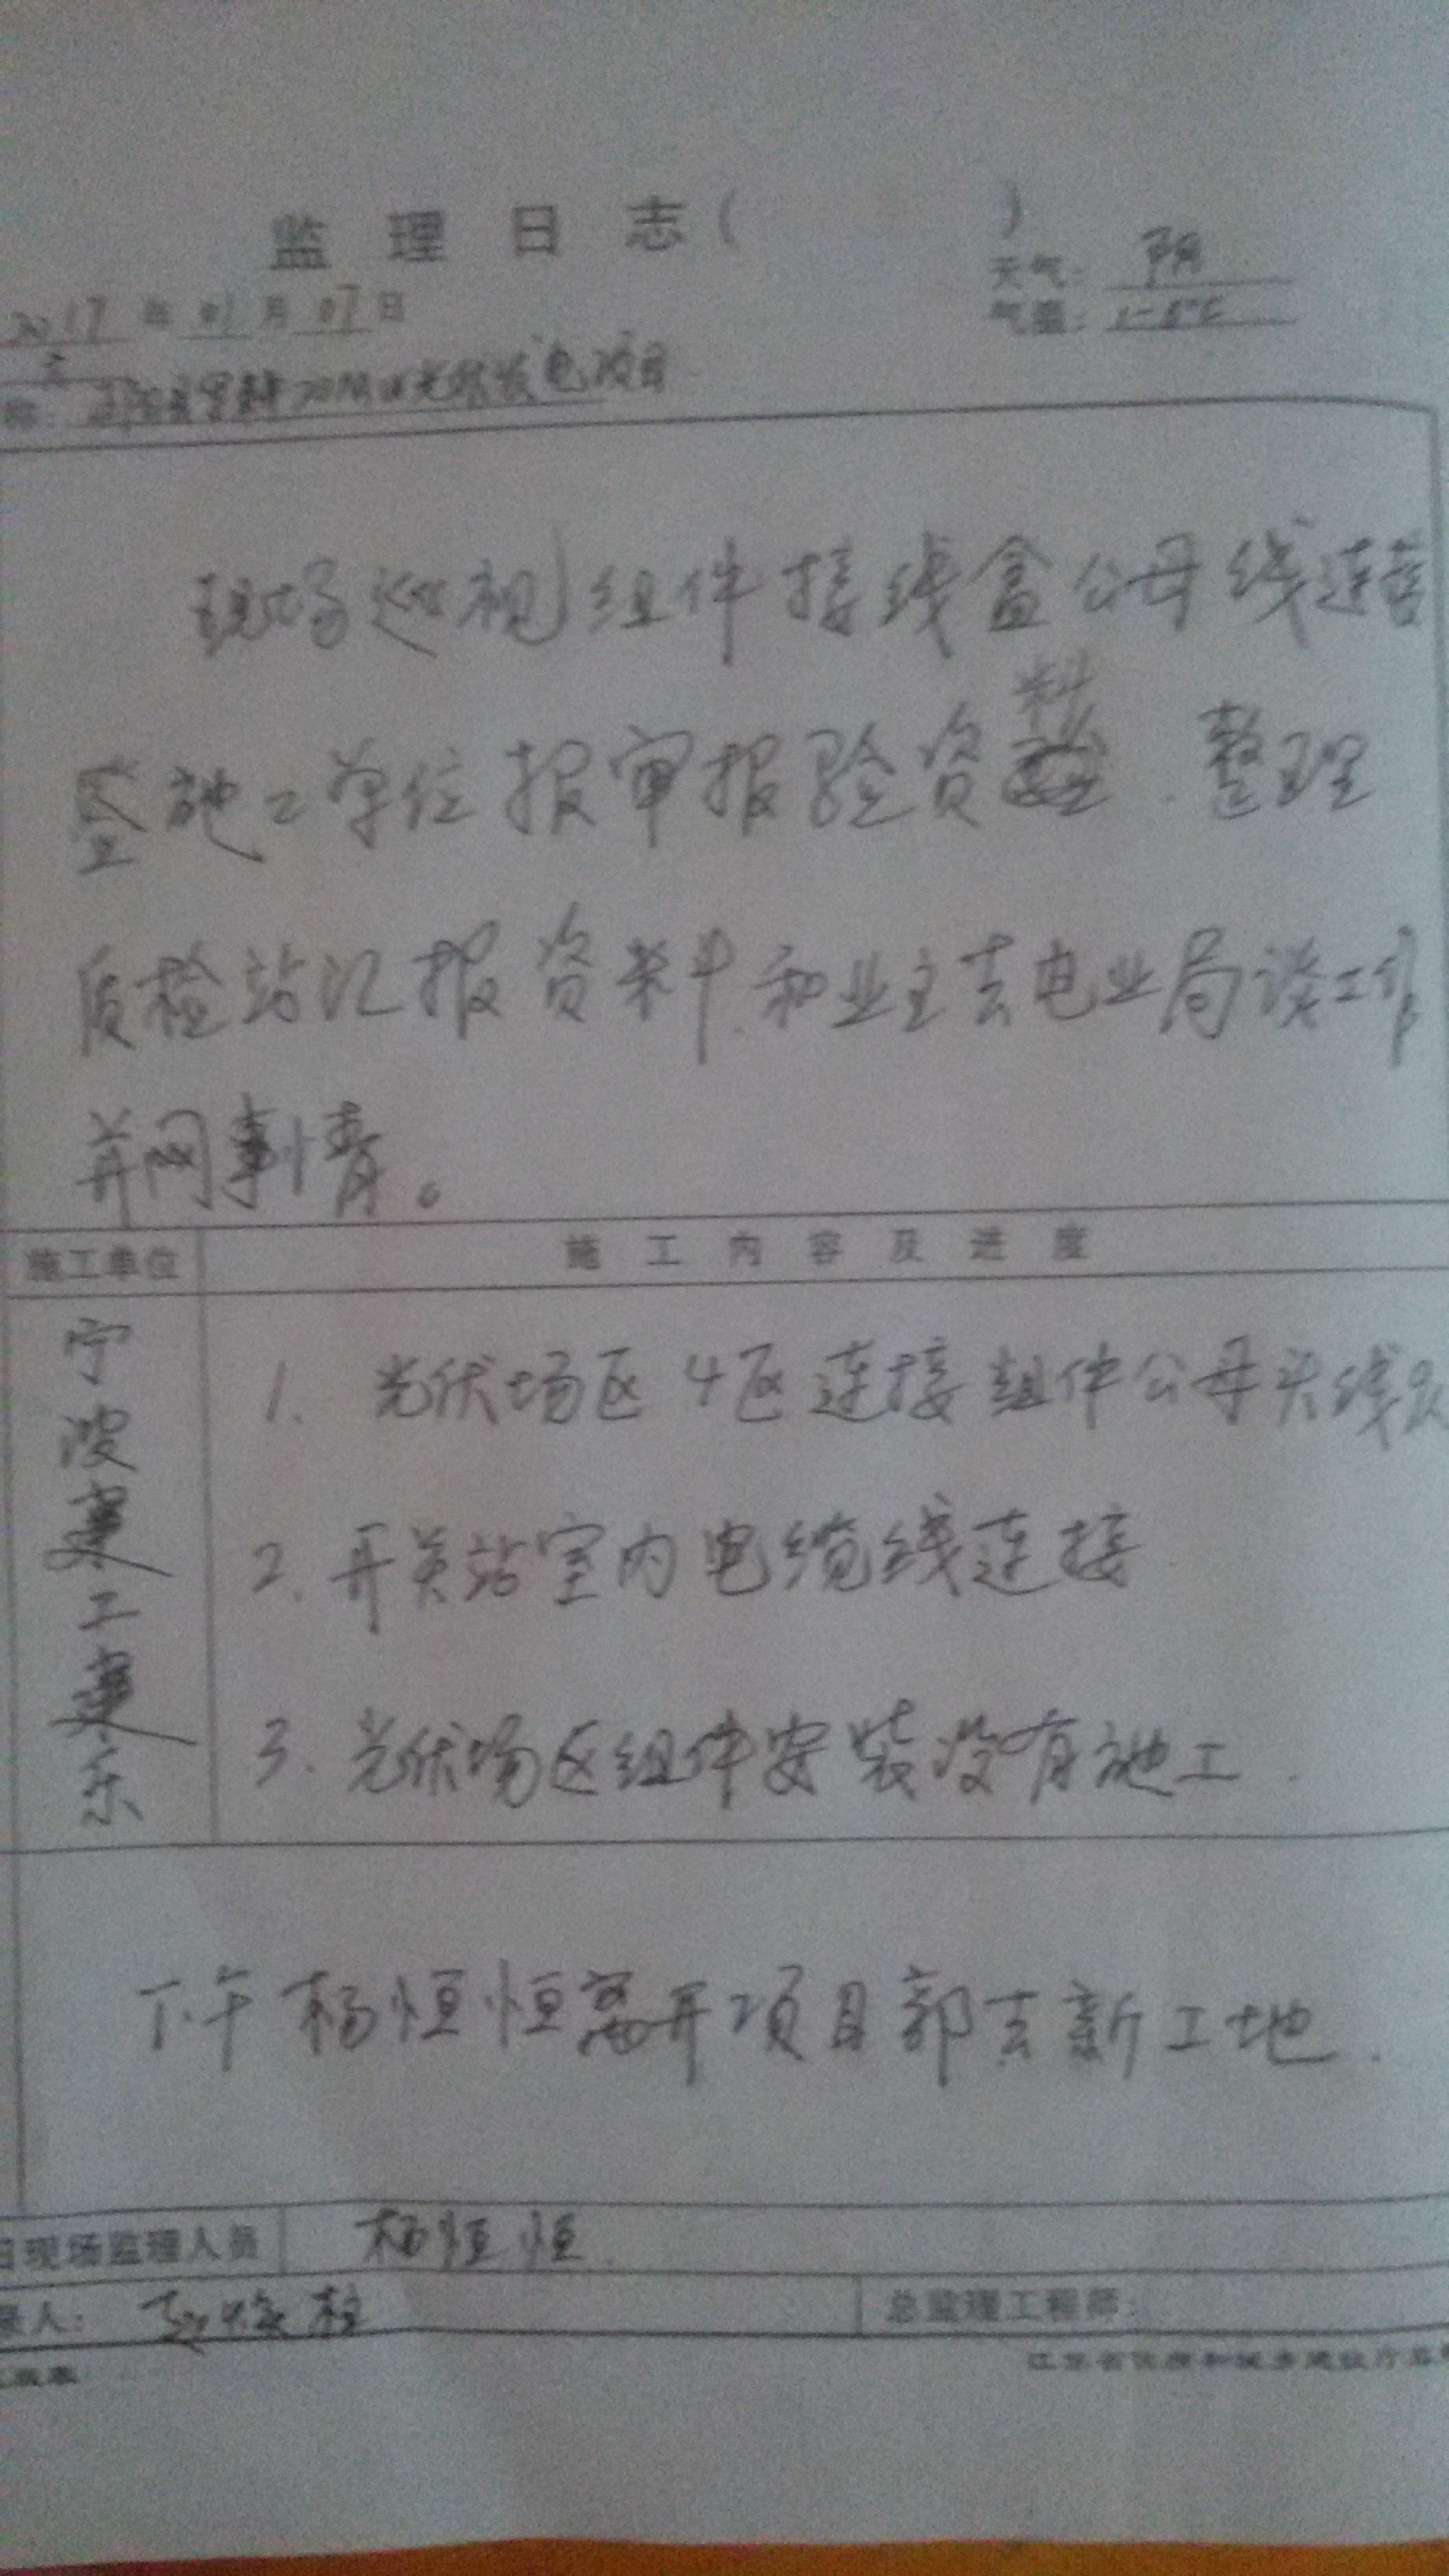 监理日志( )
天气: 阴
2017年01月07日
气温:
20MW光伏发电项目
现场巡视组件接线盒公母线连接
施工单位报审报验资料.整理
质检站汇报资料.和业主去电业局谈工作
并网事情。
施工单位 施工内容及进度
宁波建工建乐
1. 光伏场区4区连接组件公母头线
2. 开关站室内电缆线连接
3. 光伏场区组件安装没有施工.
下午杨恒恒离开项目部去新工地.
日现场监理人员 杨恒恒
录人: 总监理工程师:
江苏省住房和城乡建设厅监制